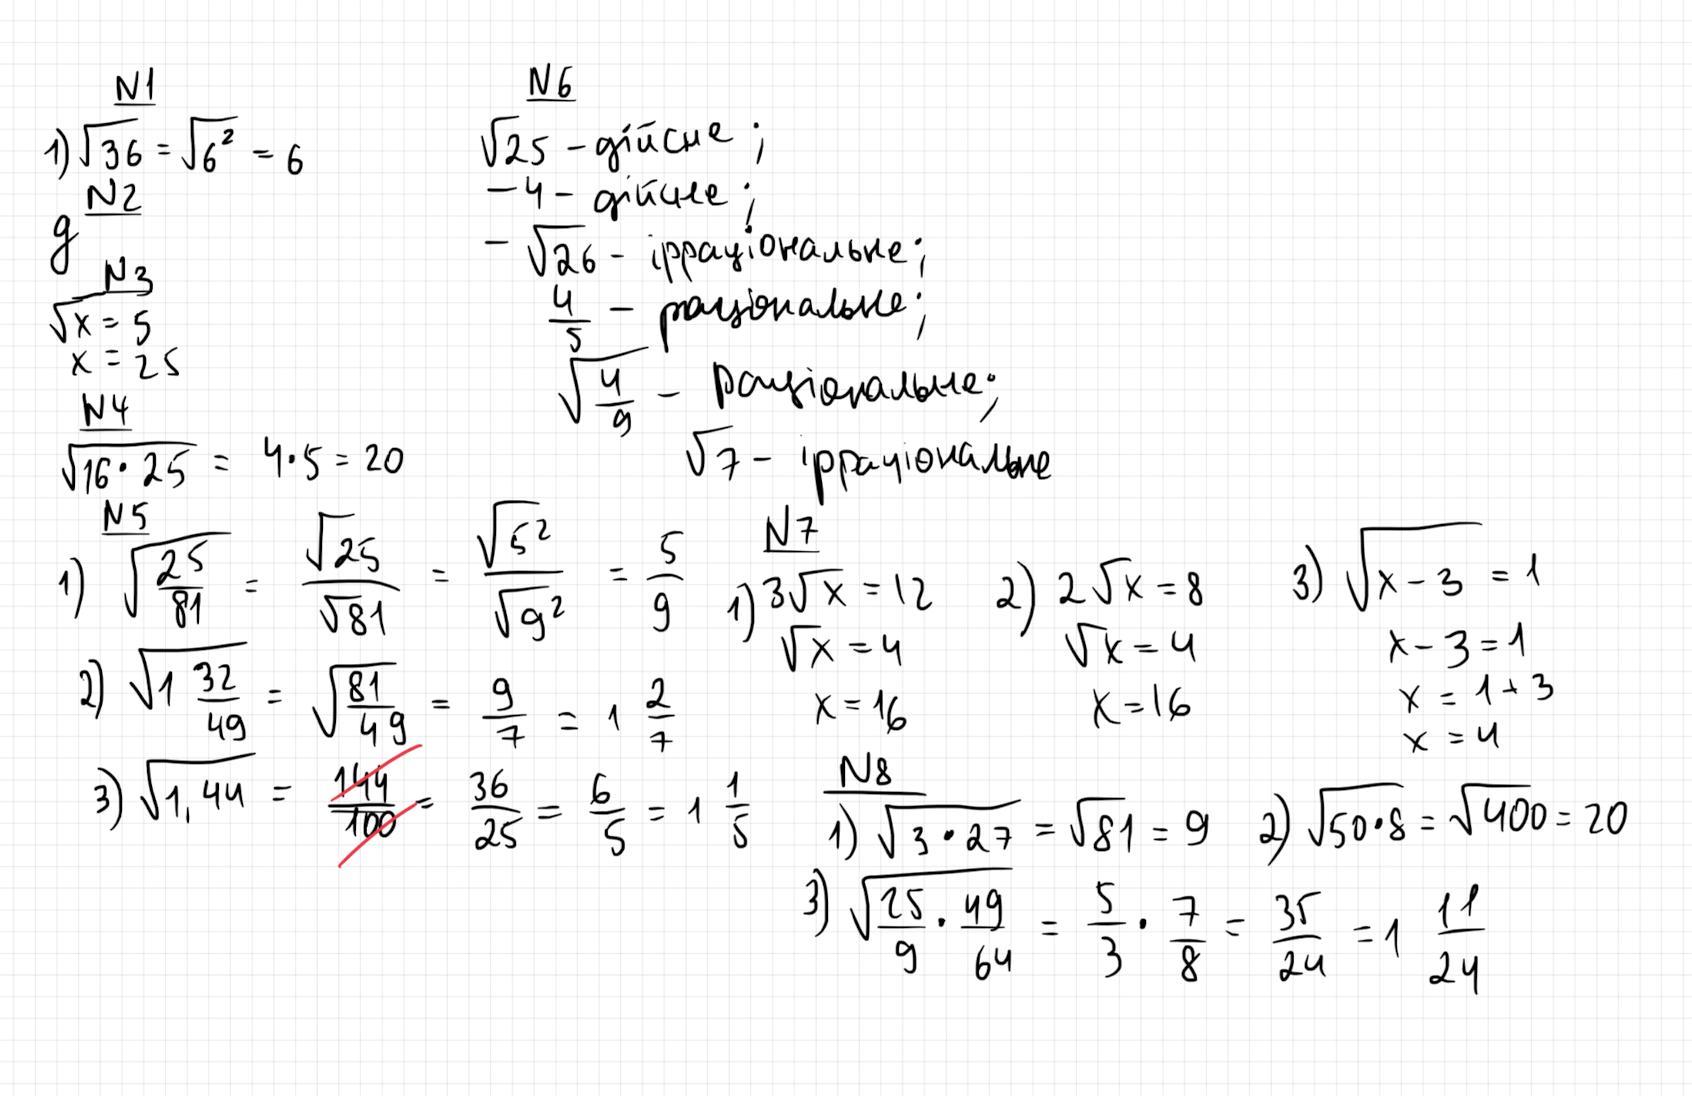 N1
1) √36 = √6² = 6
N2
g
N3
√x = 5
x = 25
N4
√16·25 = 4·5 = 20
N5
1) √25/81 = √25/√81 = √5²/√9² = 5/9
2) √1 32/49 = √81/49 = 9/7 = 1 2/7
3) √1,44 = 144/100 = 36/25 = 6/5 = 1 1/5
N6
√25 - дійсне;
-4 - дійсне;
-√26 - ірраціональне;
4/5 - раціональне;
√4/9 - раціональне;
√7 - ірраціональне
N7
1) 3√x = 12
√x = 4
x = 16
2) 2√x = 8
√x = 4
x = 16
3) √x - 3 = 1
x - 3 = 1
x = 1 + 3
x = 4
N8
1) √3·27 = √81 = 9
2) √50·8 = √400 = 20
3) √25/9 · 49/64 = 5/3 · 7/8 = 35/24 = 1 11/24